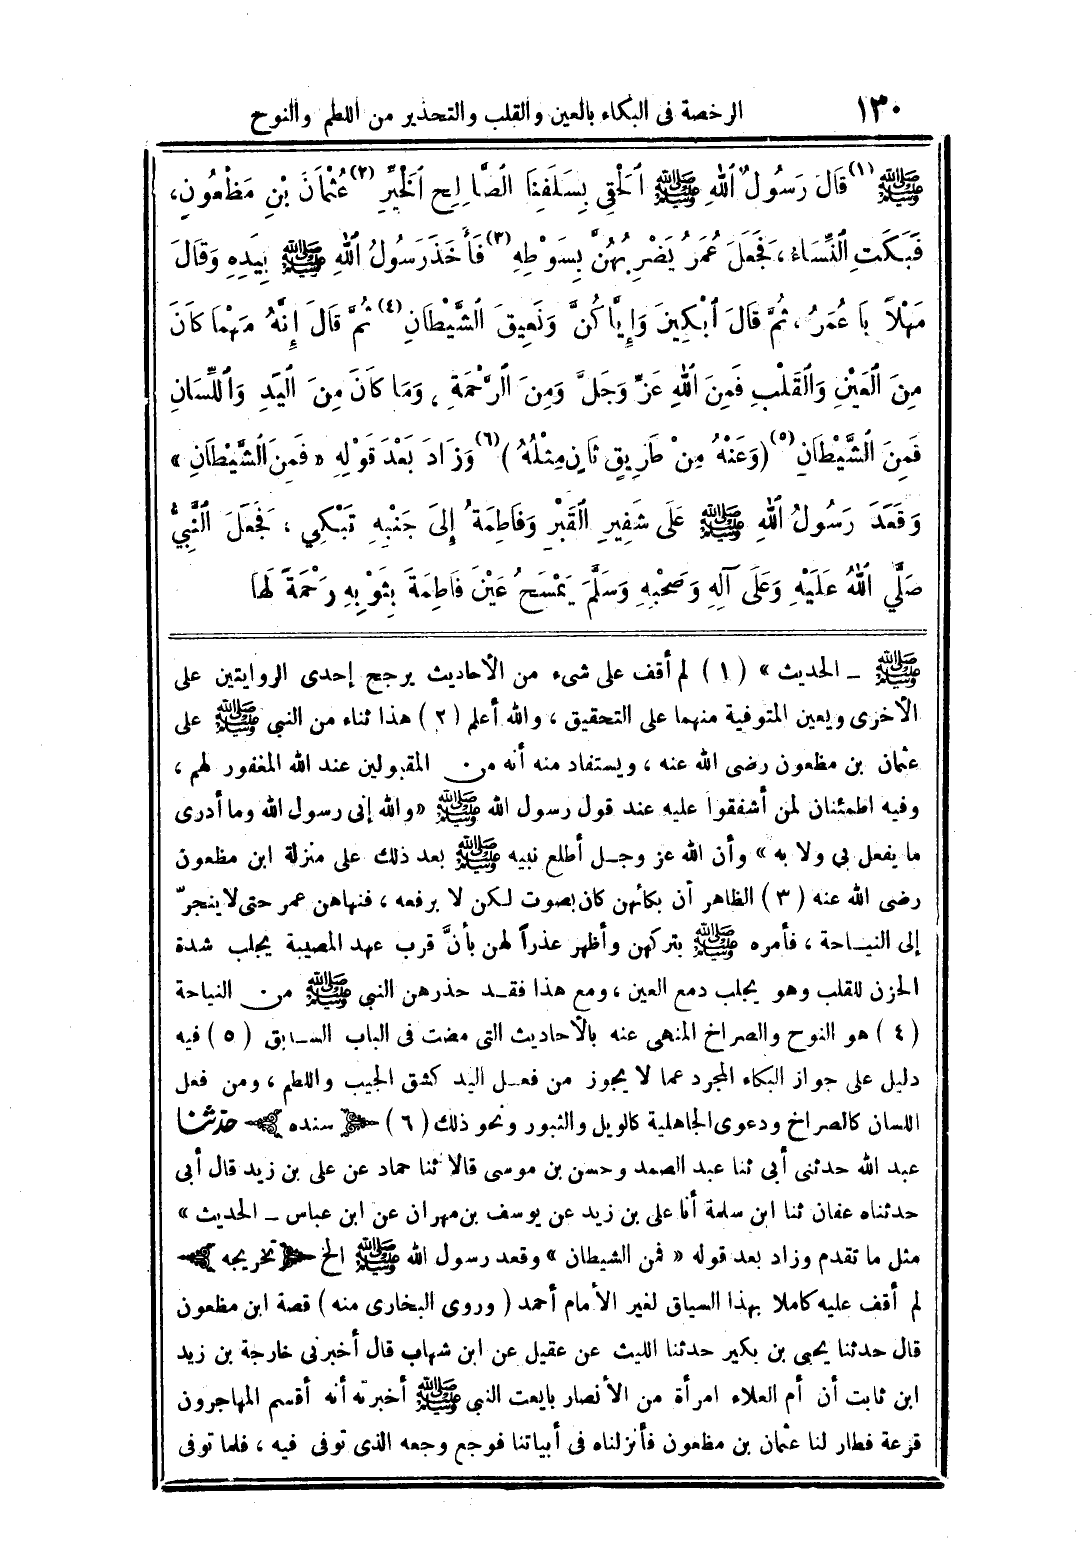 ١٣٠ الرخصة فى البكاء بالعين والقلب والتحذير من اللطم والنوح
ﷺ (١) قَالَ رَسُولُ ٱللهِ ﷺ ٱلْحَقِي بِسَلَفِنَا ٱلصَّالِحِ ٱلْخَيِّرِ (٢) عُثْمَانَ بْنِ مَظْعُونٍ،
فَبَكَتِ ٱلنِّسَاءُ، فَجَعَلَ عُمَرُ يَضْرِبُهُنَّ بِسَوْطِهِ (٣) فَأَخَذَ رَسُولُ ٱللهِ ﷺ بِيَدِهِ وَقَالَ
مَهْلاً يَا عُمَرُ، ثُمَّ قَالَ ٱبْكِينَ وَإِيَّاكُنَّ وَنَعِيقَ ٱلشَّيْطَانِ (٤) ثُمَّ قَالَ إِنَّهُ مَهْمَا كَانَ
مِنَ ٱلْعَيْنِ وَٱلْقَلْبِ فَمِنَ ٱللهِ عَزَّ وَجَلَّ وَمِنَ ٱلرَّحْمَةِ، وَمَا كَانَ مِنَ ٱلْيَدِ وَٱللِّسَانِ
فَمِنَ ٱلشَّيْطَانِ (٥) (وَعَنْهُ مِنْ طَرِيقٍ ثَانٍ مِثْلُهُ) (٦) وَزَادَ بَعْدَ قَوْلِهِ « فَمِنَ ٱلشَّيْطَانِ »
وَقَعَدَ رَسُولُ ٱللهِ ﷺ عَلَى شَفِيرِ ٱلْقَبْرِ وَفَاطِمَةُ إِلَى جَنْبِهِ تَبْكِي، فَجَعَلَ ٱلنَّبِيُّ
صَلَّي ٱللهُ عَلَيْهِ وَعَلَى آلِهِ وَصَحْبِهِ وَسَلَّمَ يَمْسَحُ عَيْنَ فَاطِمَةَ بِثَوْبِهِ رَحْمَةً لَهَا
ﷺ ــ الحديث » (١) لم أقف على شىء من الأحاديث يرجح إحدى الروايتين على
الأخرى ويعين المتوفية منهما على التحقيق، والله أعلم (٢) هذا ثناء من النبي ﷺ على
عثمان بن مظعون رضى الله عنه، ويستفاد منه أنه من المقبولين عند الله المغفور لهم،
وفيه اطمئنان لمن أشفقوا عليه عند قول رسول الله ﷺ «والله إنى رسول الله وما أدرى
ما يفعل بي ولا به » وأن الله عز وجل أطلع نبيه ﷺ بعد ذلك على منزلة ابن مظعون
رضى الله عنه (٣) الظاهر أن بكائهن كان بصوت لكن لا برفعه، فنهاهن عمر حتى لا ينجرّ
إلى النياحة، فأمره ﷺ بتركهن وأظهر عذراً لهن بأنَّ قرب عهد المصيبة يجلب شدة
الحزن للقلب وهو يجلب دمع العين، ومع هذا فقد حذرهن النبي ﷺ من النياحة
(٤) هو النوح والصراخ المنهى عنه بالأحاديث التى مضت فى الباب السابق (٥) فيه
دليل على جواز البكاء المجرد عما لا يجوز من فعل اليد كشق الجيب واللطم، ومن فعل
اللسان كالصراخ ودعوى الجاهلية كالويل والثبور ونحو ذلك (٦) سنده حدثنا
عبد الله حدثنى أبى ثنا عبد الصمد وحسن بن موسى قالا ثنا حماد عن على بن زيد قال أبى
حدثناه عفان ثنا ابن سلمة أنا على بن زيد عن يوسف بن مهران عن ابن عباس ــ الحديث »
مثل ما تقدم وزاد بعد قوله « فمن الشيطان » وقعد رسول الله ﷺ الخ تخريجه
لم أقف عليه كاملا بهذا السياق لغير الأمام أحمد (وروى البخارى منه) قصة ابن مظعون
قال حدثنا يحيى بن بكير حدثنا الليث عن عقيل عن ابن شهاب قال أخبرنى خارجة بن زيد
ابن ثابت أن أم العلاء امرأة من الأنصار بايعت النبي ﷺ أخبرته أنه أقسم المهاجرون
قرعة فطار لنا عثمان بن مظعون فأنزلناه فى أبياتنا فوجع وجعه الذى توفى فيه، فلما توفى